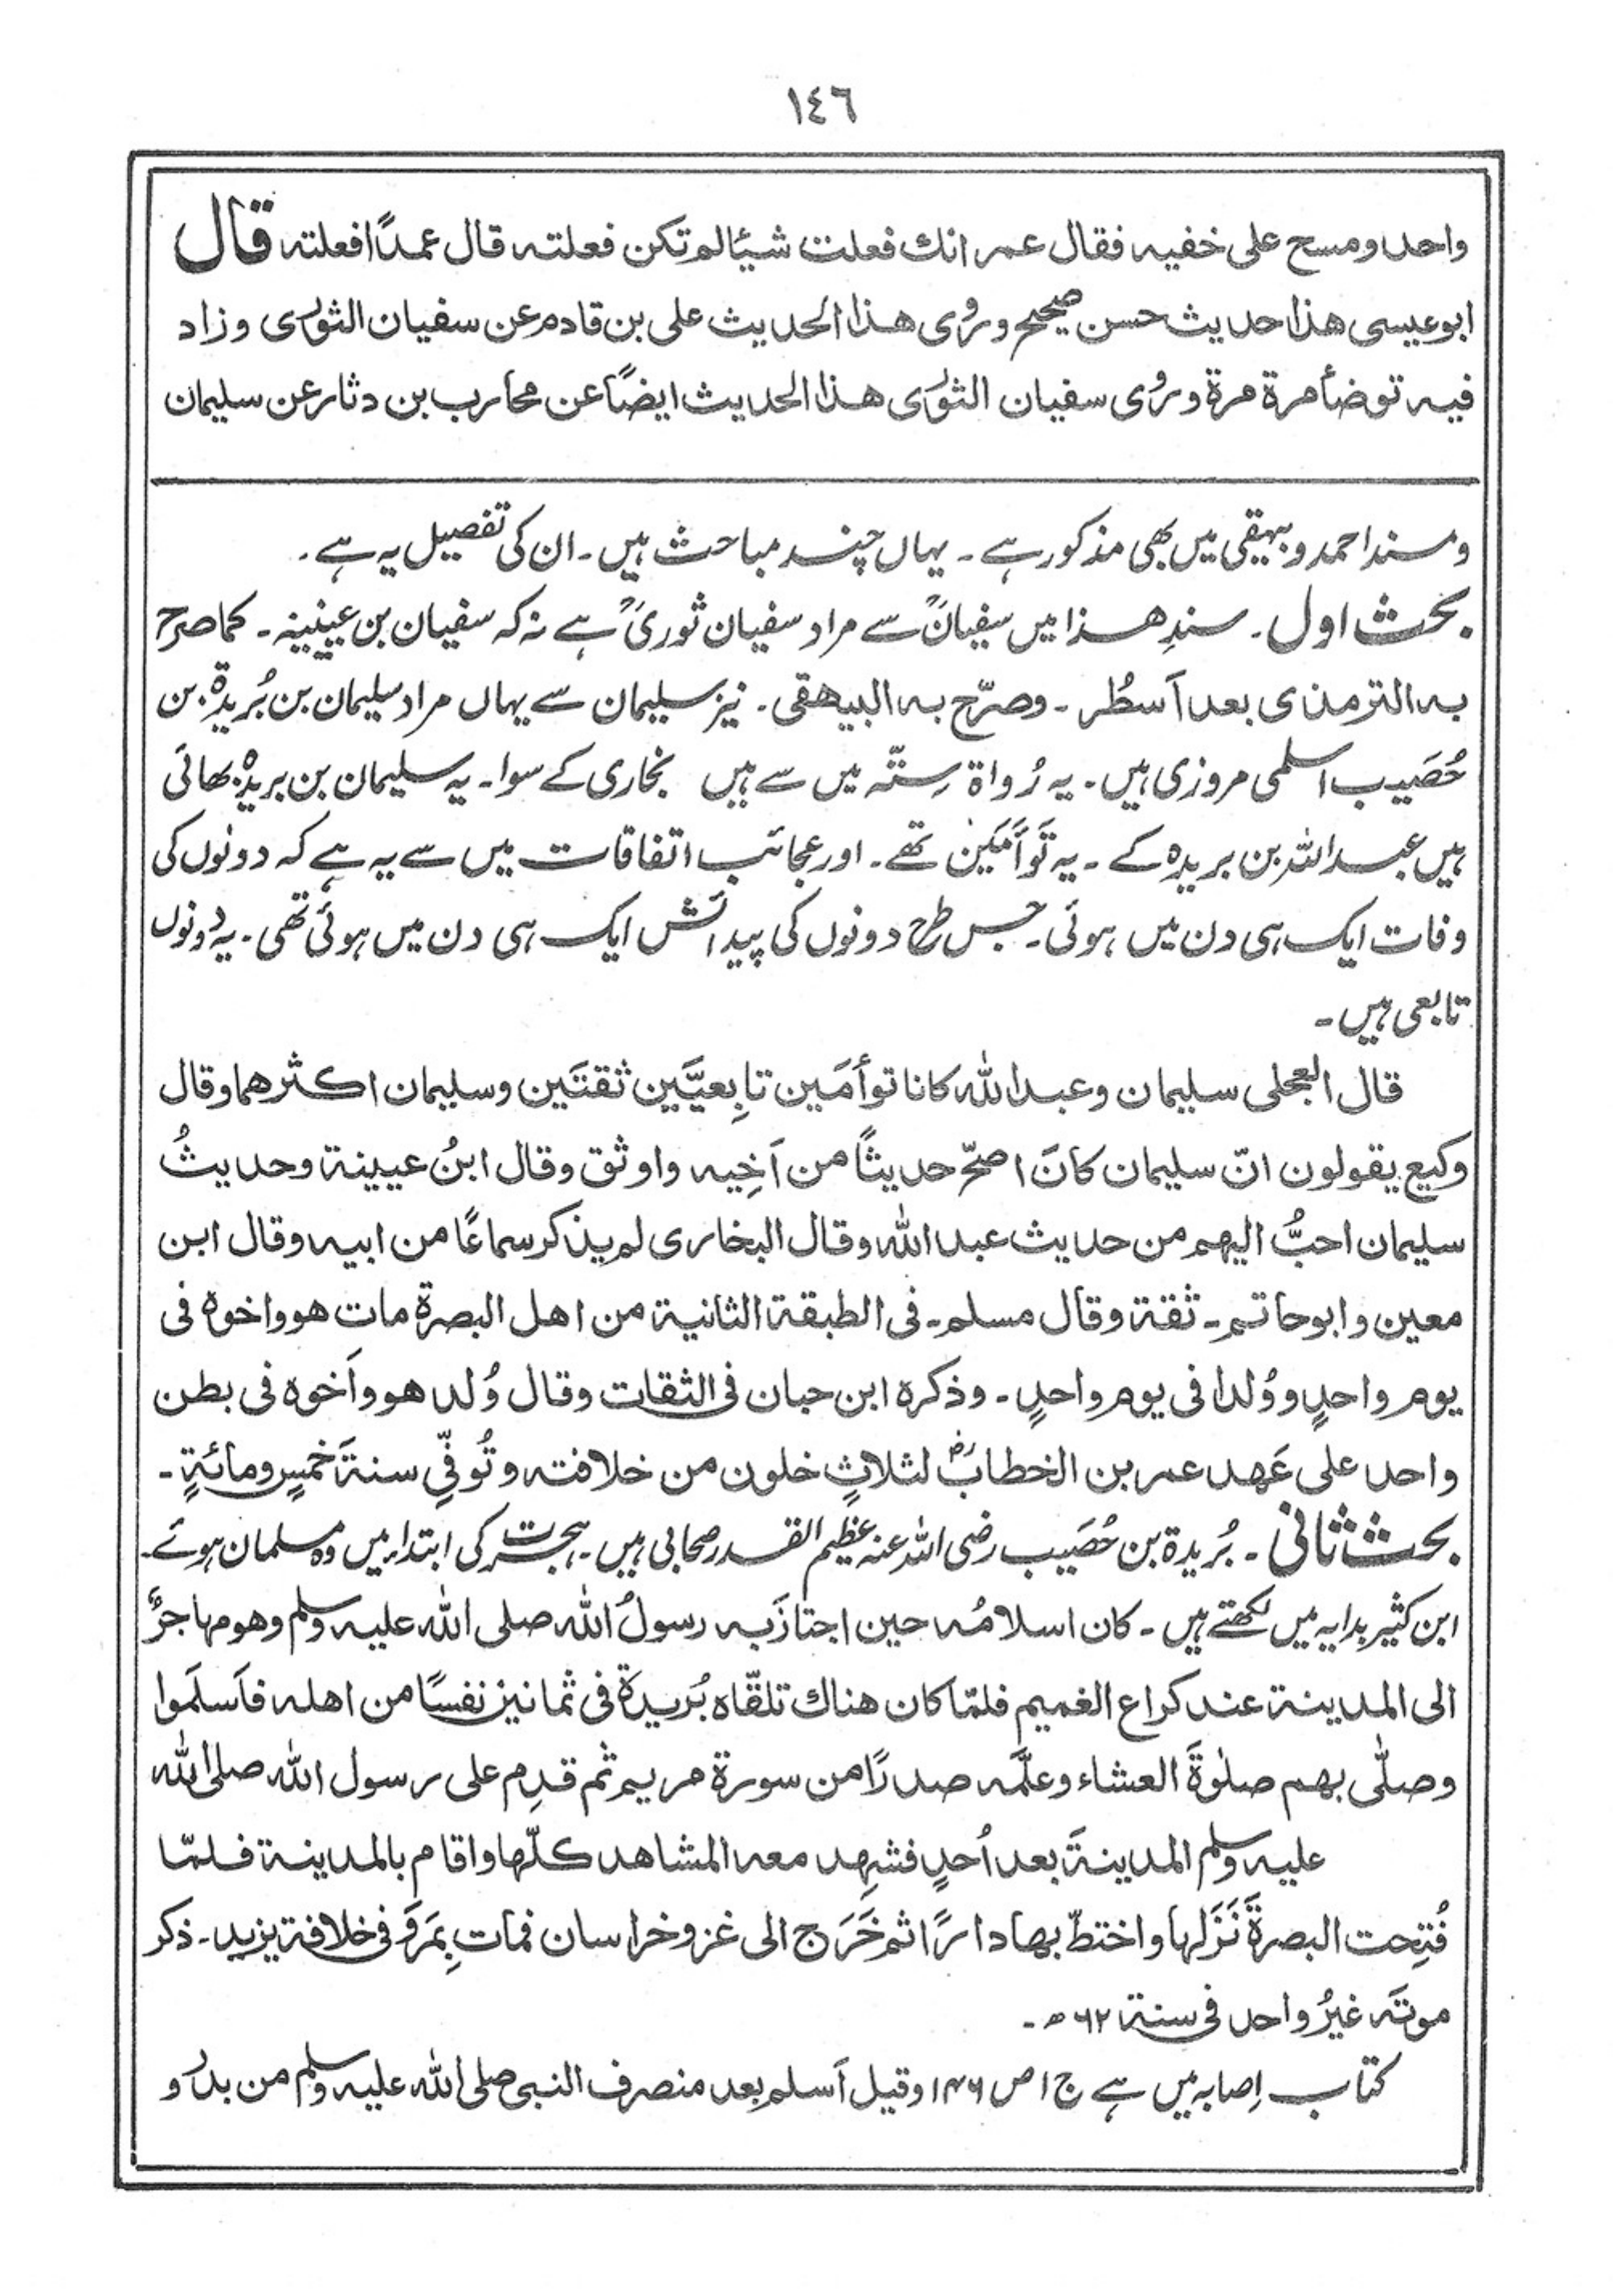 ١٤٦
واحد ومسح على خفيه فقال عمر انك فعلت شيئا لم تكن فعلته قال عمدًا فعلته قال
ابوعيسى هذا حديث حسن صحيح وروى هذا الحديث على بن قادم عن سفيان الثورى وزاد
فيه توضأ مرة مرة وروى سفيان الثورى هذا الحديث ايضًا عن محارب بن دثار عن سليمان
ومسند احمد و بیہقی میں بھی مذکور ہے ۔ یہاں چند مباحث ہیں ۔ ان کی تفصیل یہ ہے ۔
بحث اول ۔ سندِ ھذا میں سفیانؒ سے مراد سفیان ثوریؒ ہے نہ کہ سفیان بن عیینہ ۔ کما صرح
به الترمذى بعد اَسطُر ۔ وصرّح به البيهقى ۔ نیز سلیمان سے یہاں مراد سلیمان بن بُریدۃ بن
حُصَیب اسلمی مروزی ہیں ۔ یہ رُواۃ سِتّہ میں سے ہیں بخاری کے سوا ۔ یہ سلیمان بن بریدہ بھائی
ہیں عبد اللہ بن بریدہ کے ۔ یہ تَوأَمَین تھے ۔ اور عجائب اتفاقات میں سے یہ ہے کہ دونوں کی
وفات ایک ہی دن میں ہوئی ۔ جس طرح دونوں کی پیدائش ایک ہی دن میں ہوئی تھی ۔ یہ دونوں
تابعی ہیں ۔
قال العجلى سليمان وعبد الله كانا توأمَين تابِعيَّين ثقتَين وسليمان اكثرهما وقال
وكيع يقولون انّ سليمان كانَ اصحّ حديثًا من اَخِيه واوثق وقال ابنُ عيينة وحديثُ
سليمان احبُّ اليهم من حديث عبد الله وقال البخارى لم يذكر سماعًا من ابيه وقال ابن
معين وابوحاتم ۔ ثقة وقال مسلم ۔ فى الطبقة الثانية من اهل البصرة مات هو واخوه فى
يوم واحدٍ ووُلدا فى يوم واحدٍ ۔ وذكره ابن حبان فى الثقات وقال وُلد هو واَخوه فى بطن
واحد على عَهد عمر بن الخطابؓ لثلاثٍ خلون من خلافته وتُوفِّي سنةَ خمسٍ ومائةٍ ۔
بحث ثانی ۔ بُریدۃ بن حُصَیب رضی اللہ عنہ عظیم القدر صحابی ہیں ۔ ہجرت کی ابتداء میں وہ مسلمان ہوئے ۔
ابن کثیر بدایہ میں لکھتے ہیں ۔ كان اسلامُه حين اجتازَ به رسولُ الله صلى الله عليه وسلم وهو مهاجرٌ
الى المدينة عند كراع الغميم فلمّا كان هناك تلقّاه بُريدة فى ثمانين نفسًا من اهله فاَسلَموا
وصلّٰى بهم صلٰوةَ العشاء وعلَّمه صدرًا من سورة مريم ثم قدِم على رسول الله صلى الله
عليه وسلم المدينةَ بعد اُحدٍ فشهِد معه المشاهد كلّها واقام بالمدينة فلمّا
فُتِحت البصرةَ نَزَلها واختطّ بها دارًا ثم خَرَج الى غزو خراسان فمات بِمَروَ فى خلافة يزيد ۔ ذكر
موتَه غيرُ واحد فى سنة ۶۲ ھ ۔
کتاب اِصابہ میں ہے ج ۱ ص ۱۴۶ وقيل اَسلم بعد منصرف النبى صلى الله عليه وسلم من بدر و